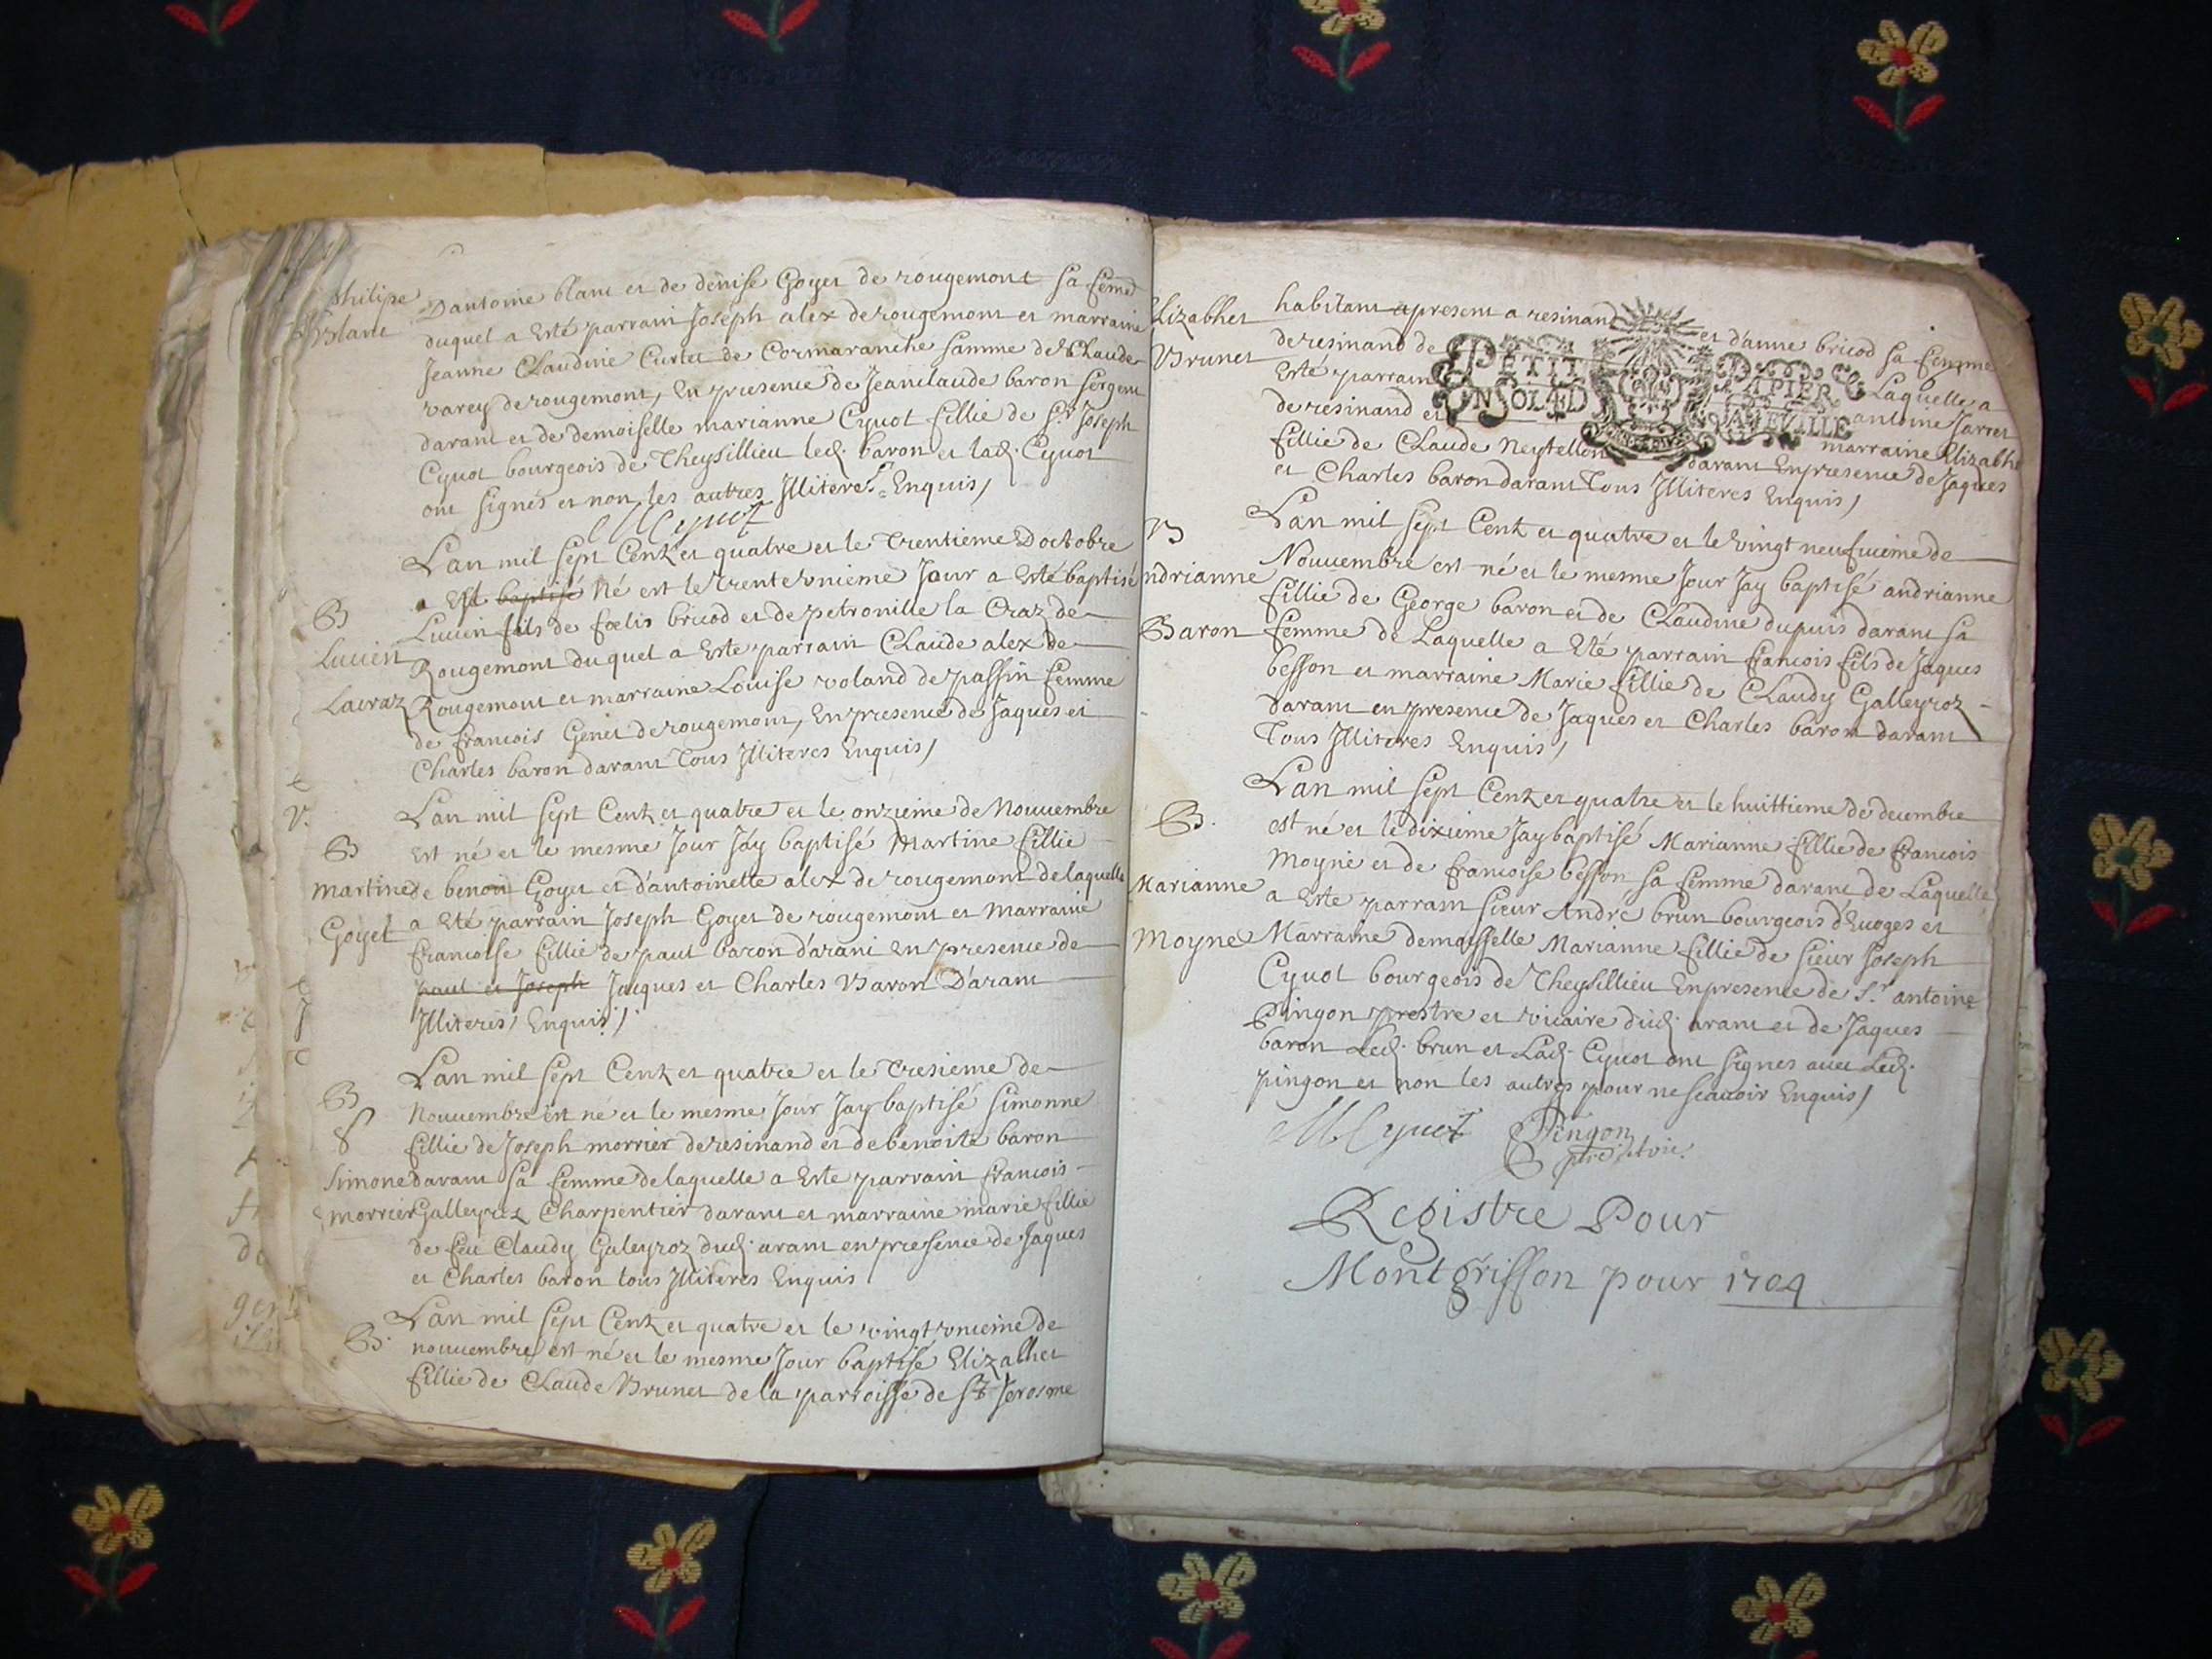 philipe
blanc
Dantoine blanc et de denise Goyet de rougemont sa femme
duquel a Esté parrain Joseph alex de rougemont et marraine
Jeanne Claudine Curtet de Cormaranche famme de Claude
varey de rougemont, En presence de Jeanclaude baron sergent
darant et de demoiselle marianne Cyuot fillie de Sr. Joseph
Cyuot bourgeois de Theysillieu led. baron et lad. Cyuot
ont signés et non les autres Illiteres Enquis,
M Cyuot
Lan mil sept Cent et quatre et le Trentieme Doctobre
a Est baptisé Né est le Trente vnieme Jour a Esté baptisé
B
Lucien
Lacraz
Lucien fils de foelis bricod et de petronille la Craz de
Rougemont duquel a Esté parrain Claude alex de
Rougemont et marraine Louise voland de passin femme
de francois Genet de rougemont, En presence de Jaques et
Charles baron darant Tous Illiteres Enquis,
Lan mil sept Cent et quatre et le onzieme de Nouuembre
B
Martine
Goyet
Est né et le mesme Jour Jay baptisé Martine fillie
de benoit Goyet et d'antoinette alex de rougemont de laquelle
a Eté parrain Joseph Goyet de rougemont et Marraine
francoise fillie de paul baron d'arant en presence de
paul et Joseph Jacques et Charles Baron D'arant
Illiteres Enquis,
Lan mil sept Cent et quatre et le Tresieme de
B
Simone
Morrier
Nouuembre est né et le mesme Jour Jay baptisé Simonne
fillie de Joseph morrier de resinand et de benoite baron
darant sa femme de laquelle a Esté parrain francois
Galleyroz Charpentier darant et marraine marie fillie
de feu Claudy Galeyroz dud. arant en presence de Jaques
et Charles baron tous Illiteres Enquis
Lan mil sept Cent et quatre et le vingt vnieme de
B.
nouuembre est né et le mesme Jour baptisé Elizabhet
fillie de Claude Brunet de la parroisse de St Jerosme
Elizabhet
Brunet
habitant apresent a resinand et d'anne bricod sa femme
de resinand de Laquelle a
Esté parrain antoine Jarret
de resinand et marraine Elizabhe
PETIT PAPIER
fillie de Claude Neytellon darant En presence de Jaques
et Charles baron darant Tous Illiteres Enquis,
Lan mil sept Cent et quatre et le vingt neufuieme de
B
Andrianne
Baron
Nouuembre est né et le mesme Jour Jay baptisé andrianne
fillie de George baron et de Claudine dupuis darant sa
femme de Laquelle a Eté parrain francois fils de Jaques
besson et marraine Marie fillie de Claudy Galleyroz
darant en presence de Jaques et Charles baron darant
Tous Illiteres Enquis,
Lan mil sept Cent et quatre et le huittieme de decembre
B.
Marianne
Moyne
est né et le dixieme Jay baptisé Marianne fillie de francois
Moyne et de francoise besson sa femme darant de Laquelle
a Esté parrain sieur André brun bourgeois d'Euoges et
Marraine demoisselle Marianne fillie de sieur Joseph
Cyuot bourgeois de Theysillieu En presence de Sr. antoine
Pingon prestre et vicaire dud. arant et de Jaques
baron Led. brun et Lad. Cyuot ont signes auec Led.
pingon et non les autres pour ne scauoir Enquis,
M Cyuot Pingon
ptre et vic.
Registre Pour
Montgriffon pour 1704